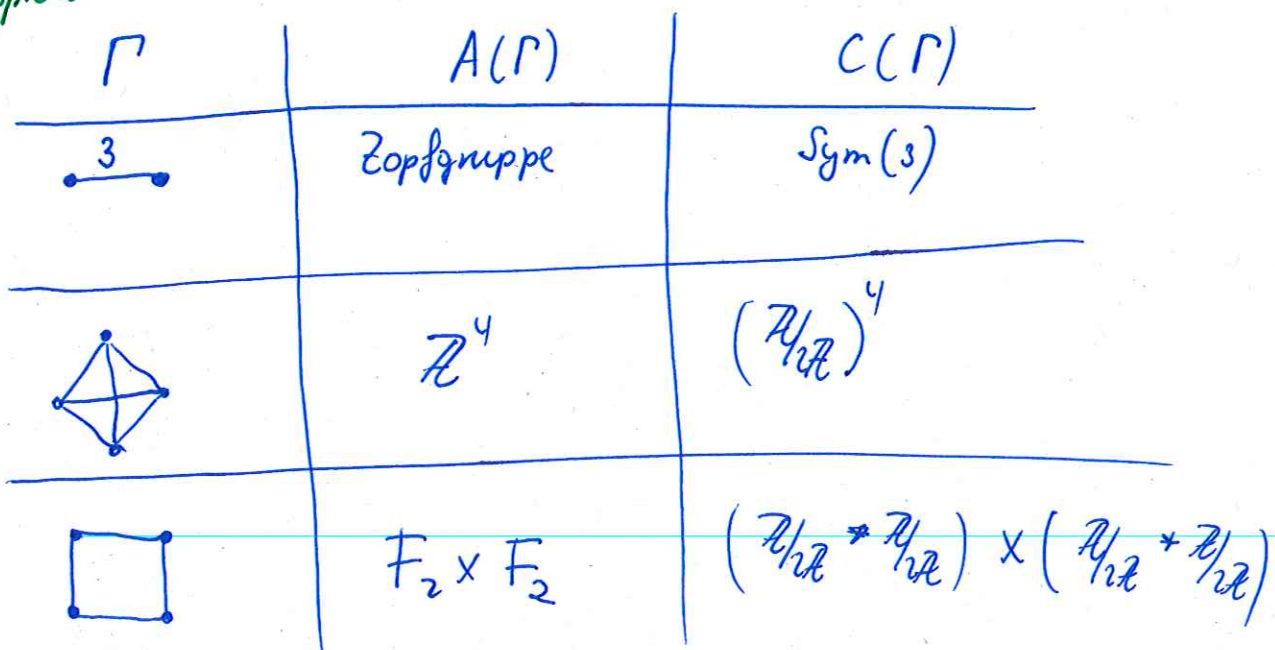 Γ A(Γ) C(Γ)
3 Zopfgruppe Sym(3)
ℤ⁴ (ℤ/2ℤ)⁴
F₂ × F₂ (ℤ/2ℤ * ℤ/2ℤ) × (ℤ/2ℤ * ℤ/2ℤ)